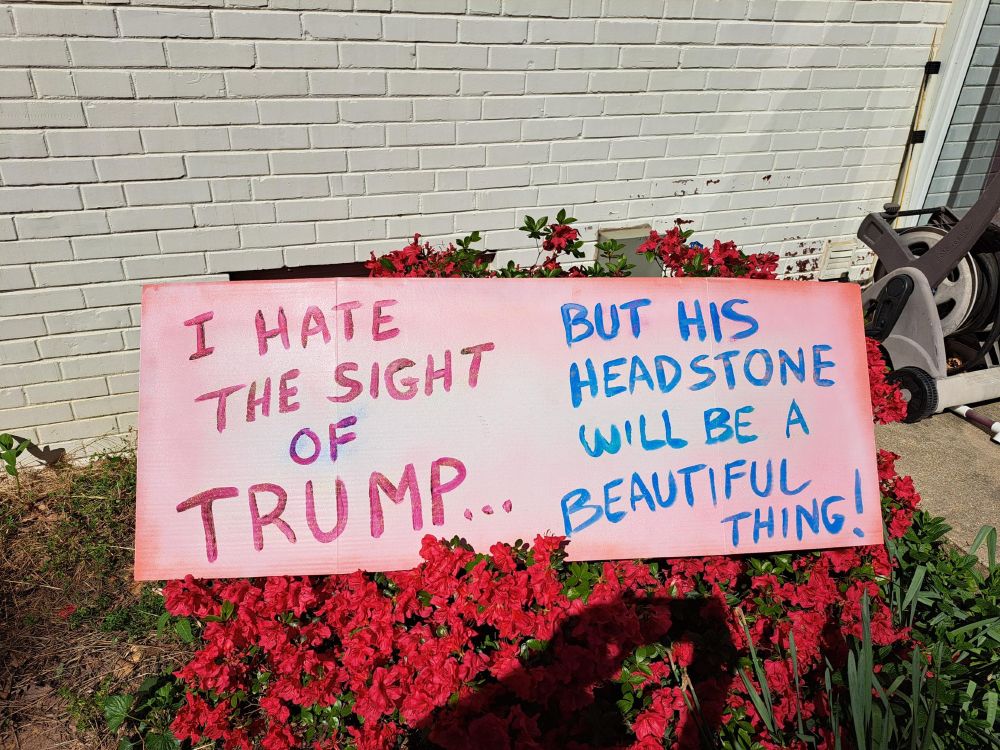 I HATE
THE SIGHT
OF
TRUMP...
BUT HIS
HEADSTONE
WILL BE A
BEAUTIFUL
THING!